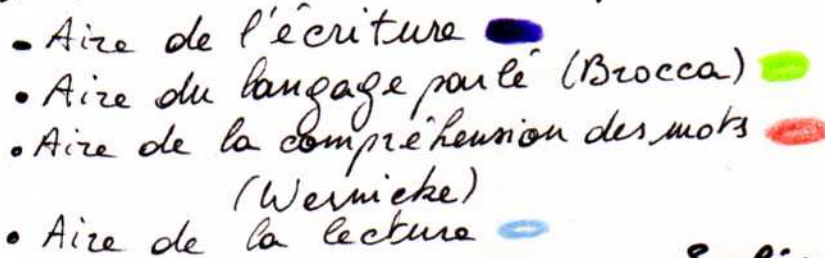 - Aire de l'écriture
• Aire du langage parlé (Brocca)
• Aire de la compréhension des mots
(Wernicke)
• Aire de la lecture